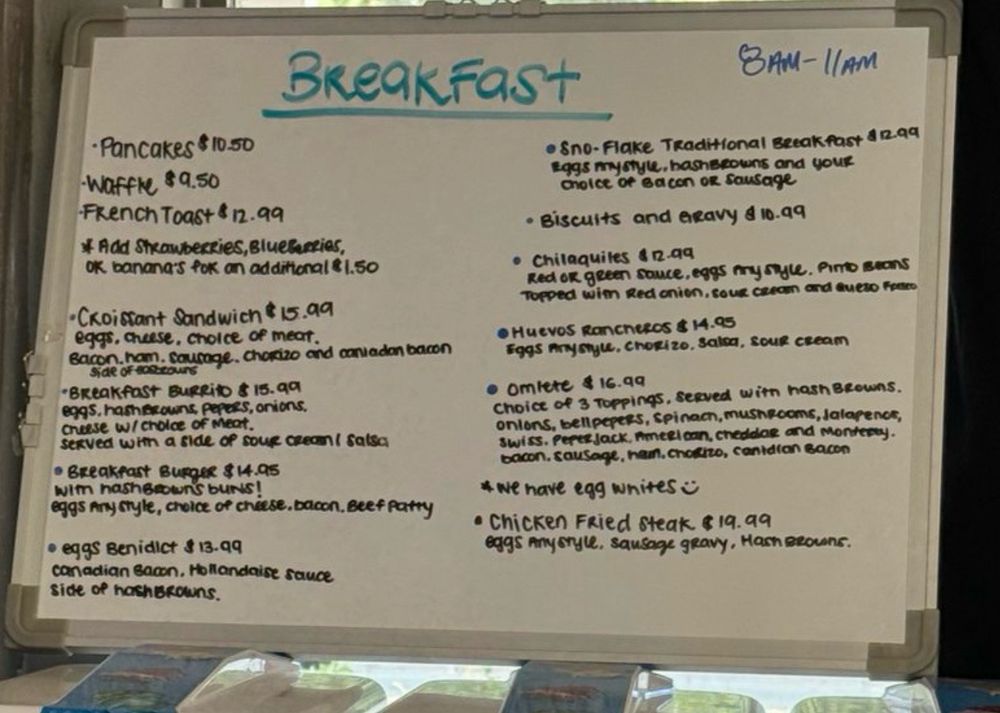 Breakfast
8AM-11AM
·Pancakes $10.50
·Waffle $9.50
·French Toast $12.99
* Add Strawberries, BlueBerries,
OR banana's for an additional $1.50
·Croissant Sandwich $15.99
eggs, cheese, choice of meat.
Bacon, ham, sausage, chorizo and caniadan bacon
side of hasbrowns
·Breakfast Burrito $15.99
eggs, hashBrowns, Pepers, onions,
cheese w/ choice of meat.
served with a side of sour cream/ Salsa
• Breakfast Burger $14.95
with hashBrowns buns!
eggs Any style, choice of cheese, bacon, Beef Patty
• eggs Benidict $13.99
Canadian Bacon, Hollandaise sauce
side of hashBrowns.
• Sno-Flake Traditional Breakfast $12.99
Eggs Anystyle, hashBrowns and your
choice of Bacon OR Sausage
• Biscuits and Gravy $10.99
• Chilaquiles $12.99
Red OR green sauce, eggs Any style, Pinto Beans
Topped with Red onion, sour cream and Queso Fresco
• Huevos Rancheros $14.95
Eggs Anystyle, Chorizo, Salsa, Sour cream
• Omlete $16.99
Choice of 3 Toppings, served with hashBrowns.
onions, bellpepers, Spinach, mushrooms, Jalapenos,
Swiss, PeperJack, American, cheddar and Monterey.
bacon, sausage, ham, chorizo, canidian Bacon
* We have egg whites ☺
• Chicken Fried Steak $19.99
eggs Anystyle, sausage gravy, Hash Browns.